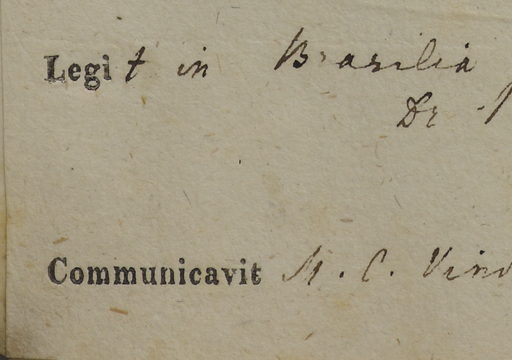 Legit in Brasilia
Dr
Communicavit M. C. Vind